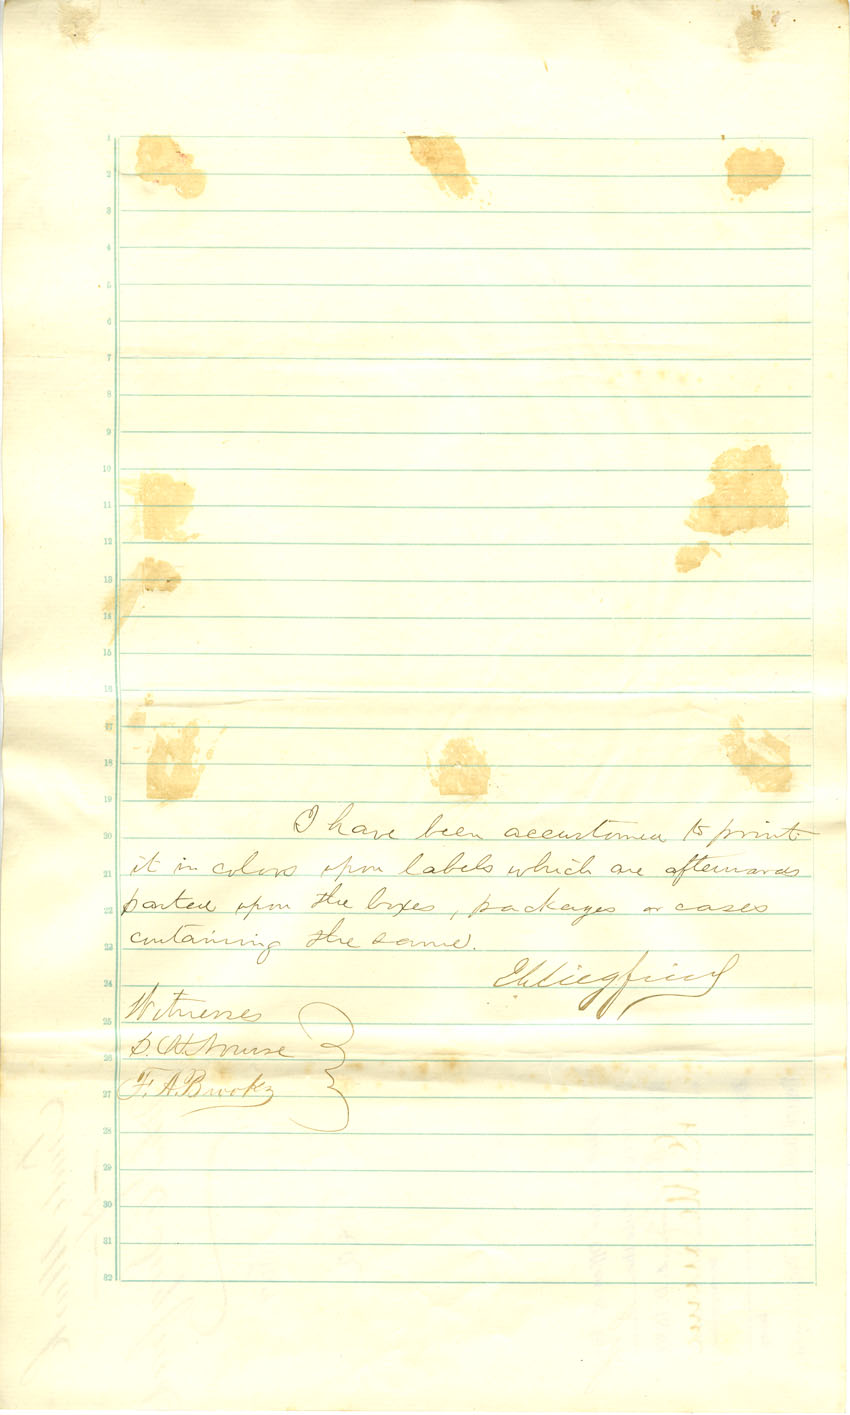 1
2
3
4
5
6
7
8
9
10
11
12
13
14
15
16
17
18
19
20
21
22
23
24
25
26
27
28
29
30
31
32
I have been accustomed to print
it in colors upon labels which are afterwards
pasted upon the boxes, packages or cases
containing the same.
Siegfried
Witnesses
D. W. Nourse
F. A. Brooks